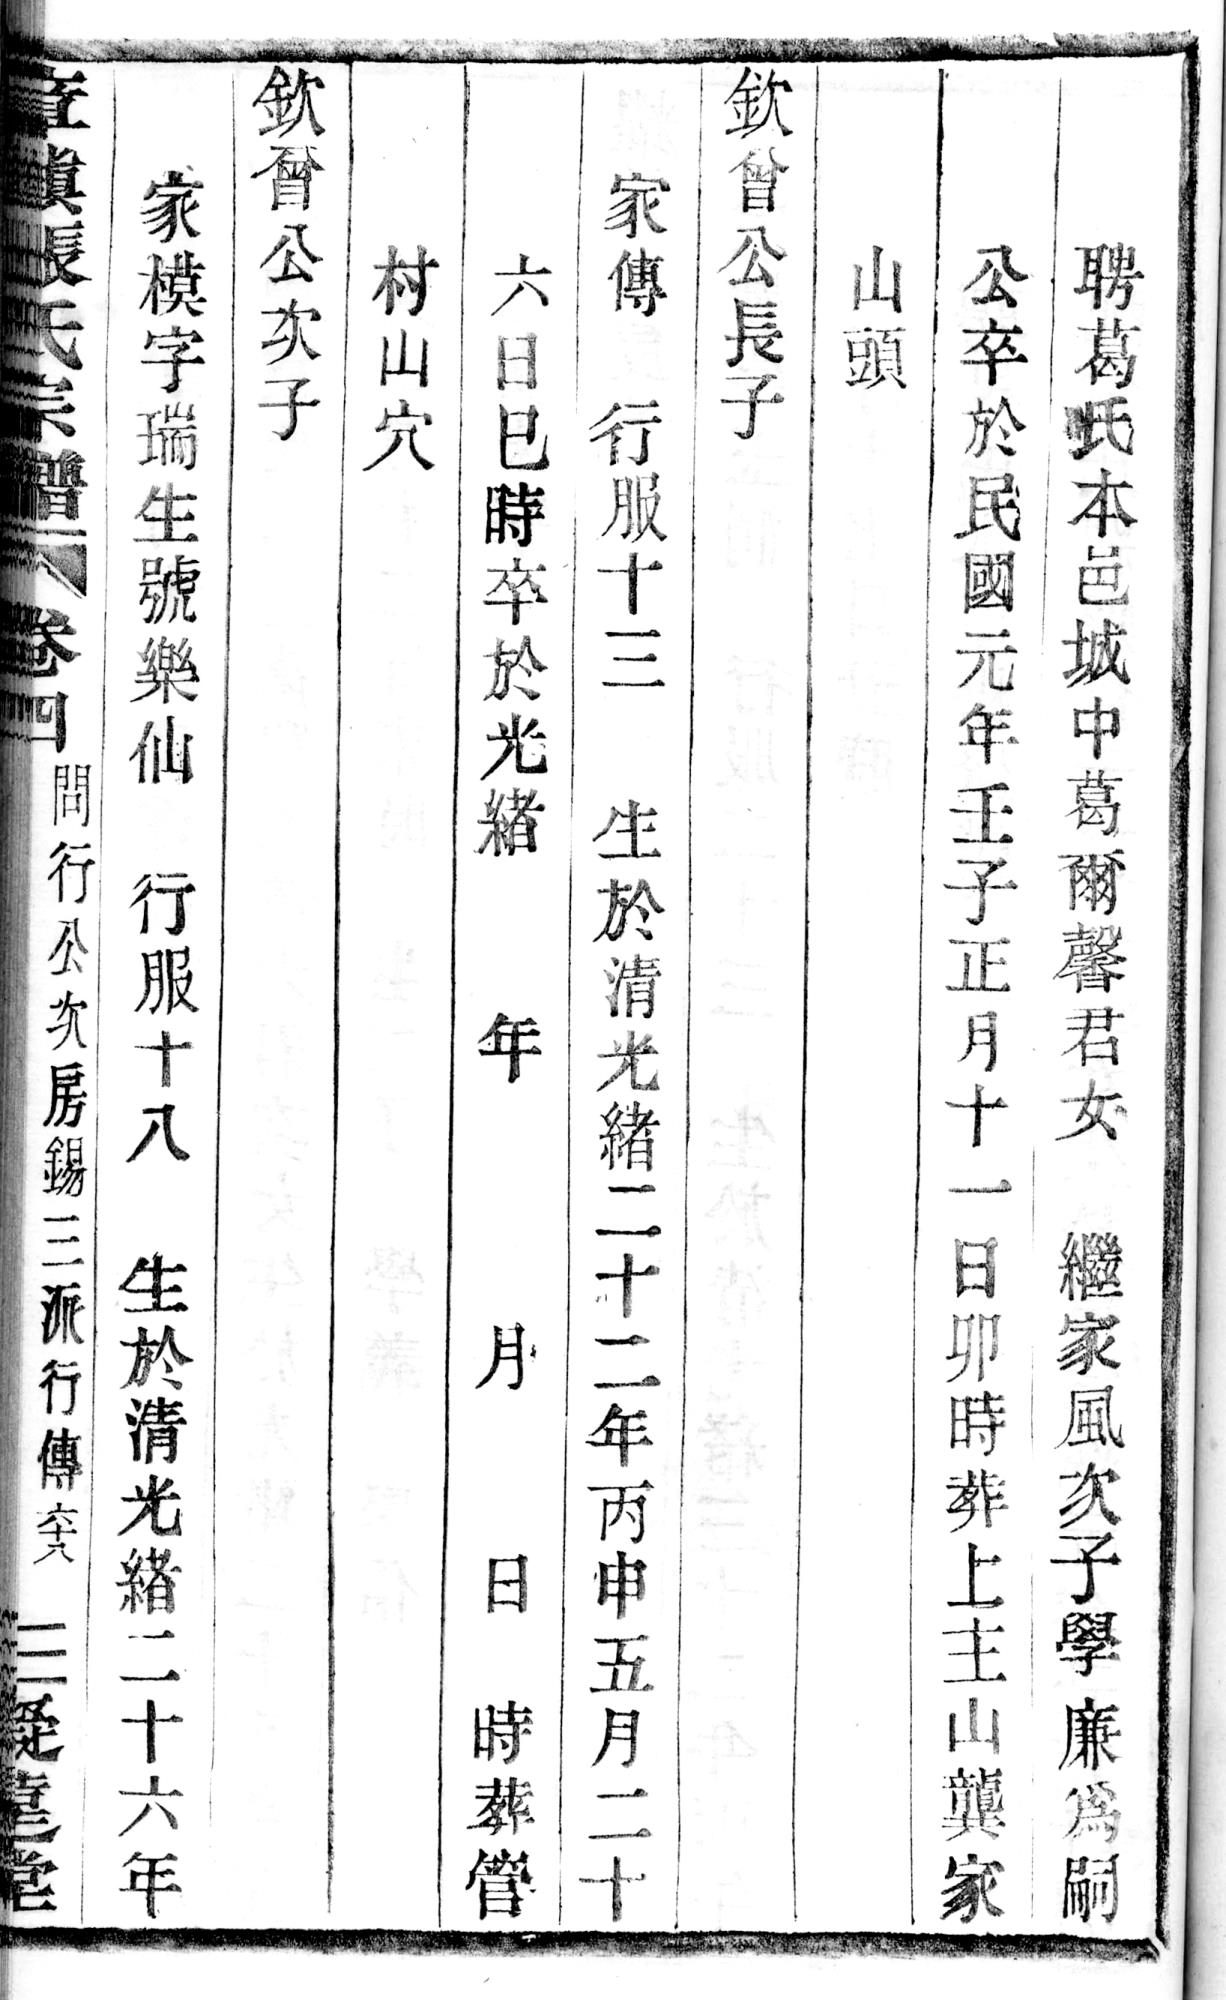 聘葛氏本邑城中葛爾馨君女　繼家風次子學廉爲嗣
公卒於民國元年壬子正月十一日卯時葬上主山龔家
山頭
欽曾公長子
家傳　行服十三　生於清光緒二十二年丙申五月二十
六日巳時卒於光緒　年　月　日　時葬管
村山穴
欽曾公次子
家模字瑞生號樂仙　行服十八　生於清光緒二十六年
張氏宗譜　卷四　問行公次房錫三派行傳　六十八　三　堂